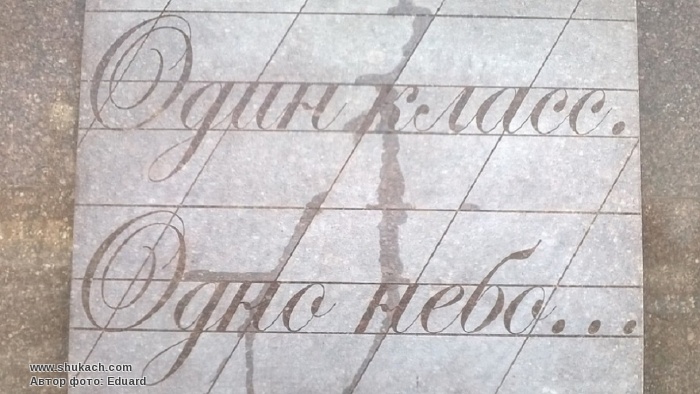 Один класс.
Одно небо...
www.shukach.com
Автор фото: Eduard